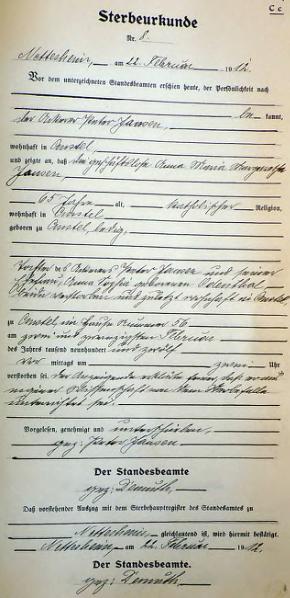 C c
Sterbeurkunde
Nr. 8
Nettersheim, am 22 Februar 1912.
Vor dem unterzeichneten Standesbeamten erschien heute, der Persönlichkeit nach
der Ackerer Peter Jansen, be kannt,
wohnhaft in
und zeigte an, daß die geschäftslose Anna Maria
Jansen,
65 Jahre alt, katholischer Religion,
wohnhaft in
geboren zu ledig,
Tochter des Ackerers Peter Jansen und seiner
Ehefrau, Anna Sophia geborenen Odenthal,
beide verstorben und zuletzt wohnhaft in
zu im Hause Nummer 56
am zwei und zwanzigsten Februar
des Jahres tausend neunhundert und zwölf
vor mittags um zwei Uhr
verstorben sei. der Anzeigende erklärte ferner, daß er aus
eigener Wissenschaft von dem Sterbefalle
unterrichtet sei.
Vorgelesen, genehmigt und unterschrieben
gez: Peter Jansen
Der Standesbeamte
gez: Demuth.
Daß vorstehender Auszug mit dem Sterbehauptregister des Standesamtes zu
Nettersheim gleichlautend ist, wird hiermit bestätigt.
Nettersheim, am 22. Februar 1912.
Der Standesbeamte.
gez: Demuth.